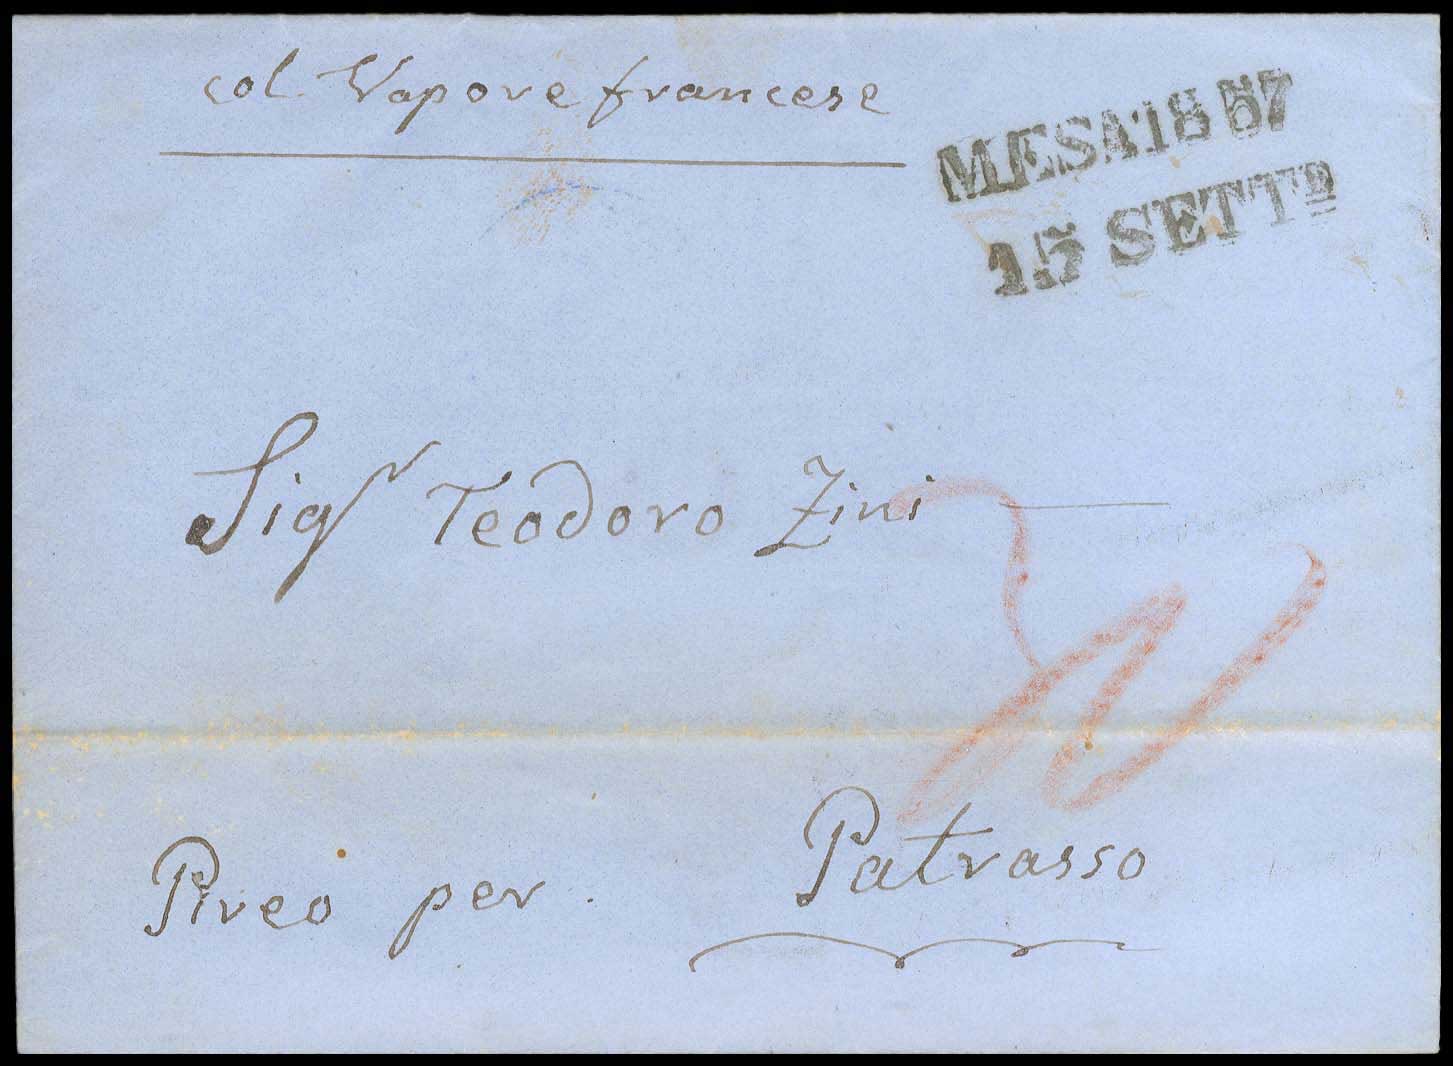 col Vapore francese
MESA 1857
15 SETTRE
Sigr Teodoro Zini
Pireo per Patrasso